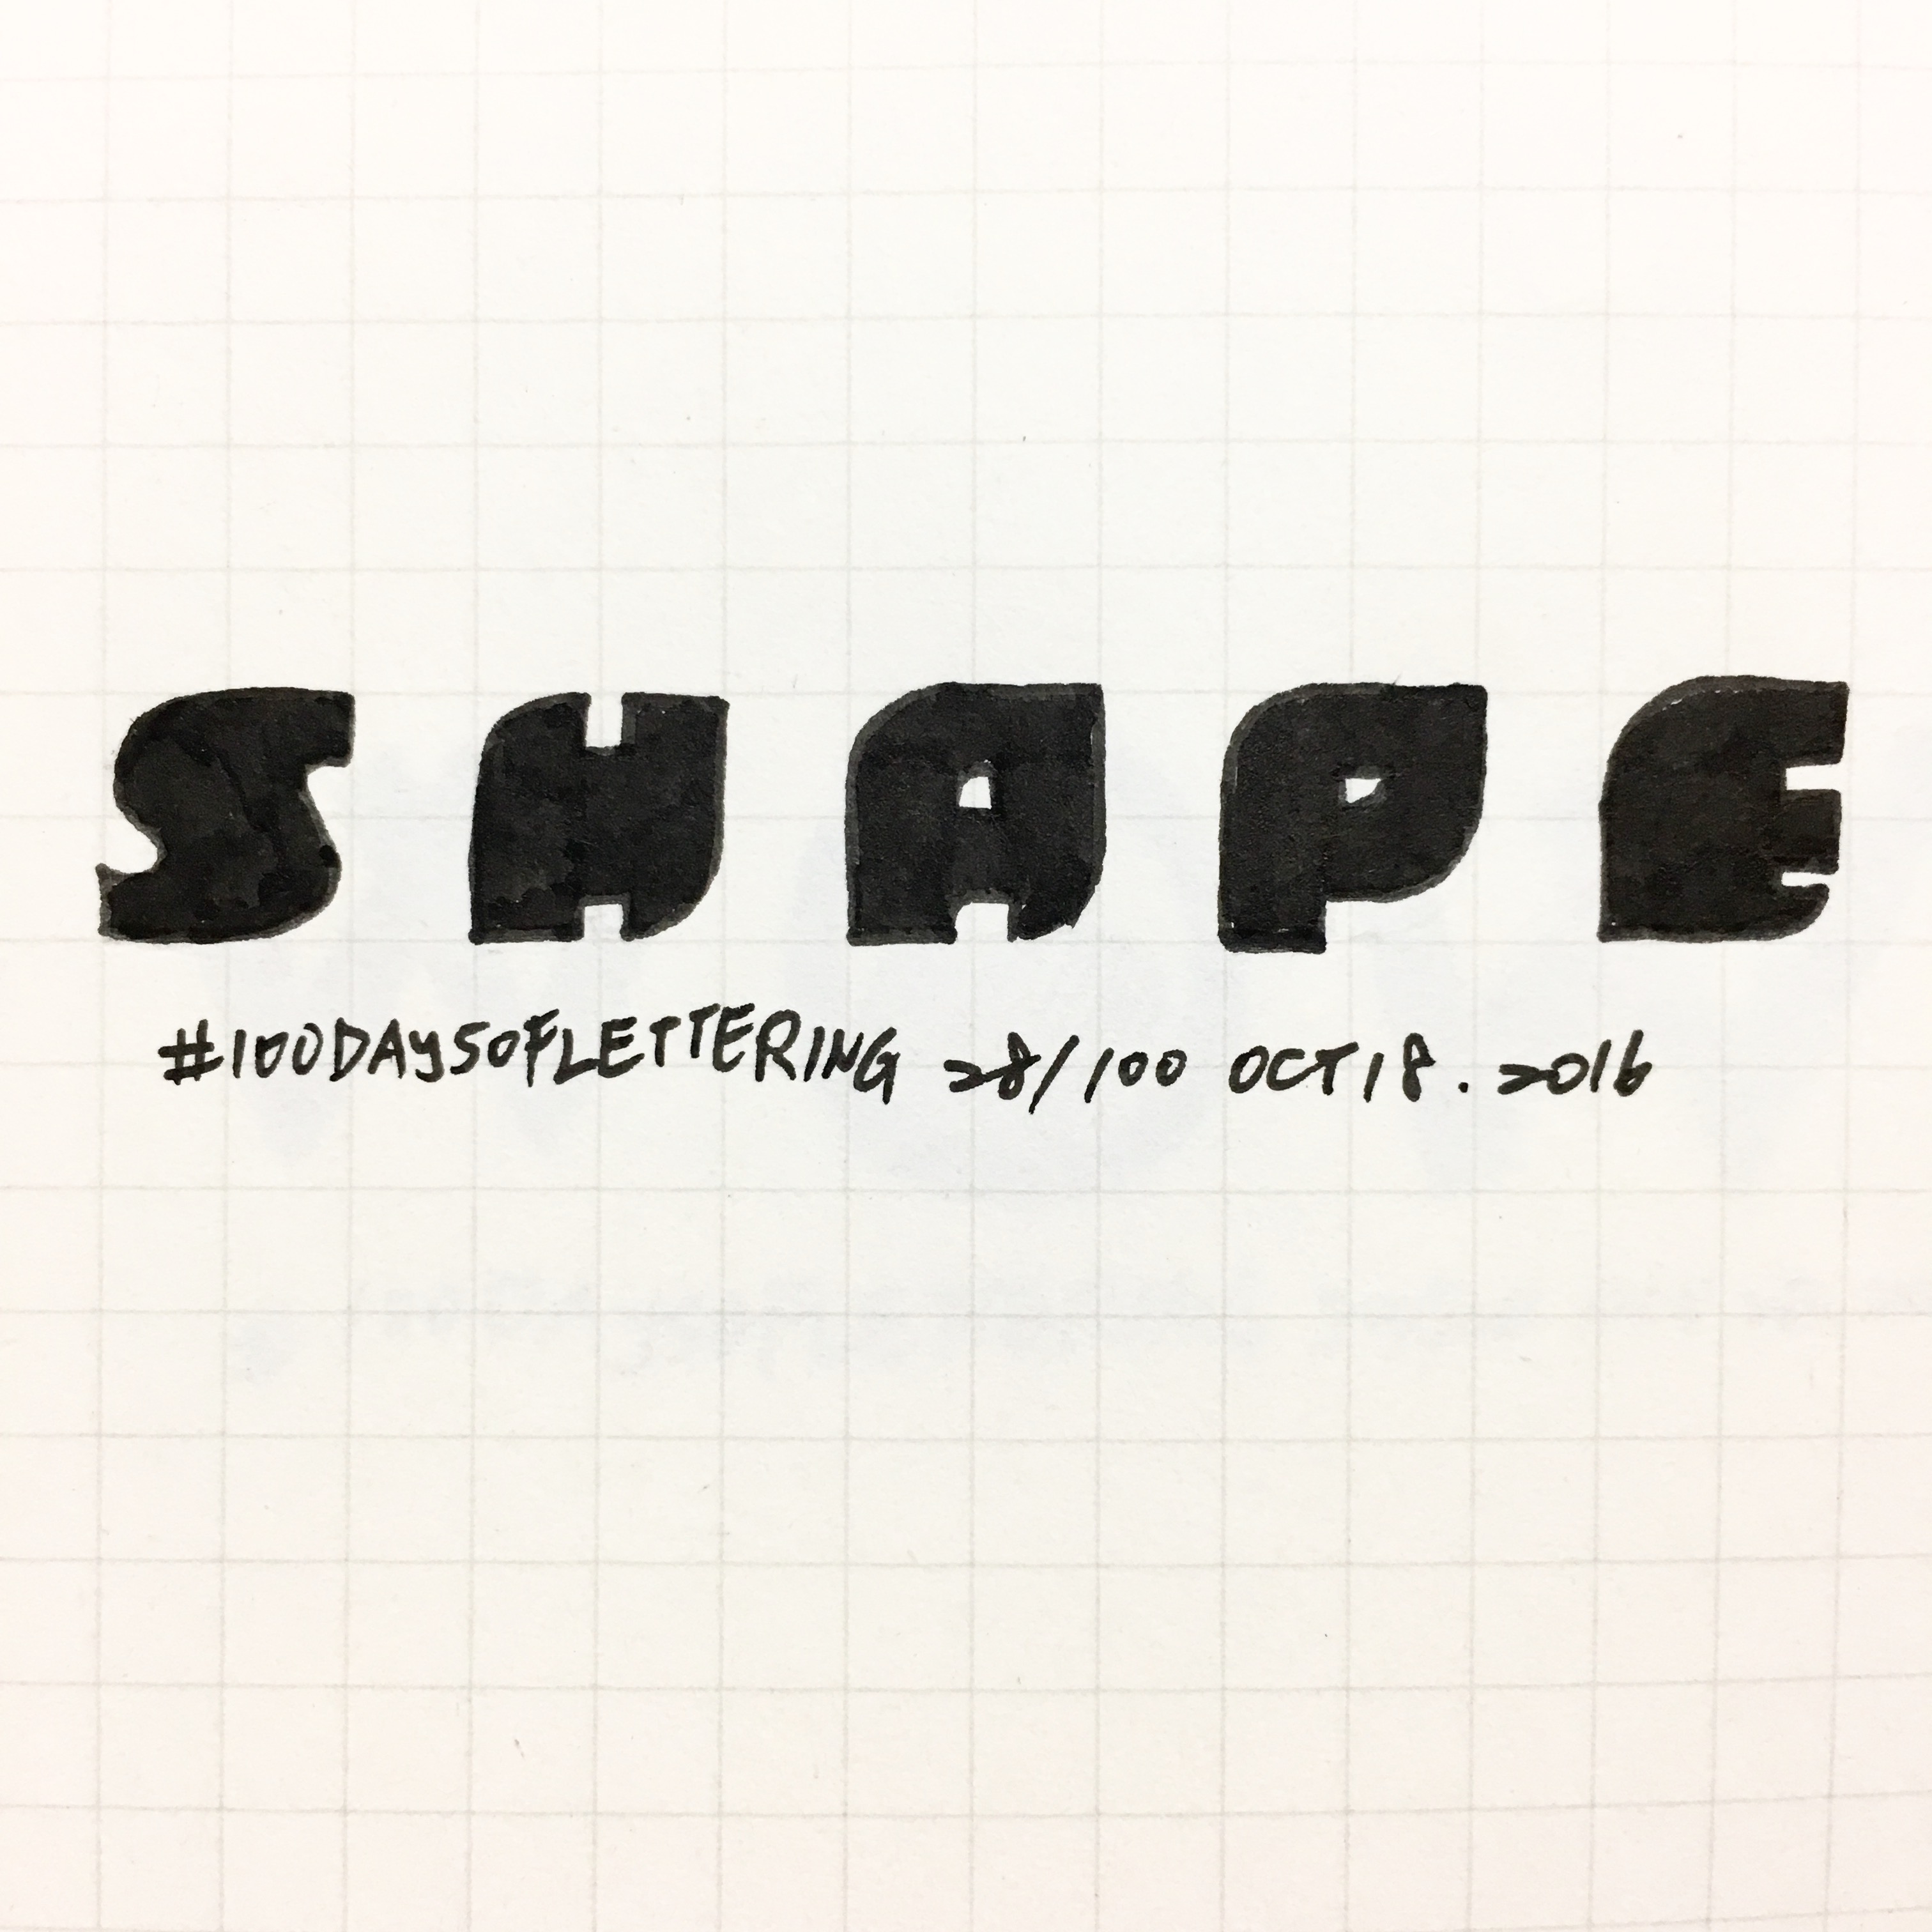 SHAPE
#100DAYSOFLETTERING 28/100 OCT 18. 2016